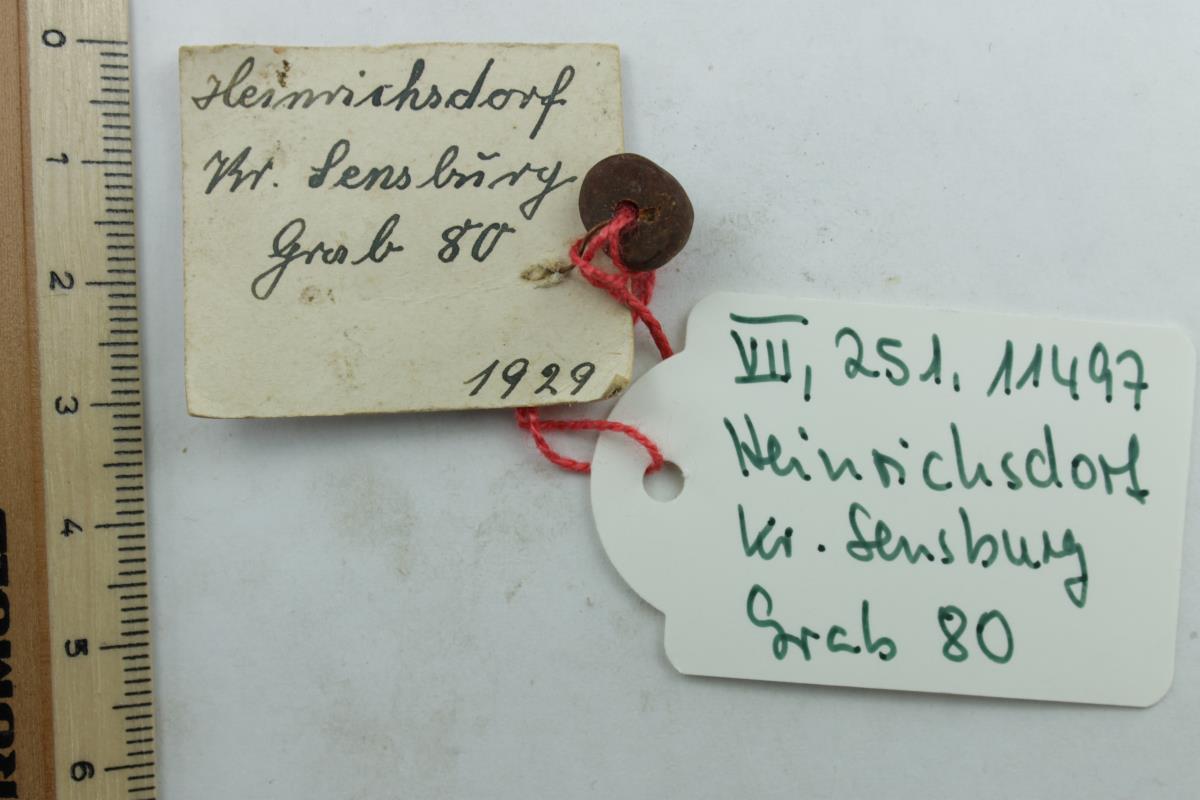 Heinrichsdorf
Kr. Sensburg
Grab 80
1929
VII, 251. 11497
Heinrichsdorf
Kr. Sensburg
Grab 80
0
1
2
3
4
5
6